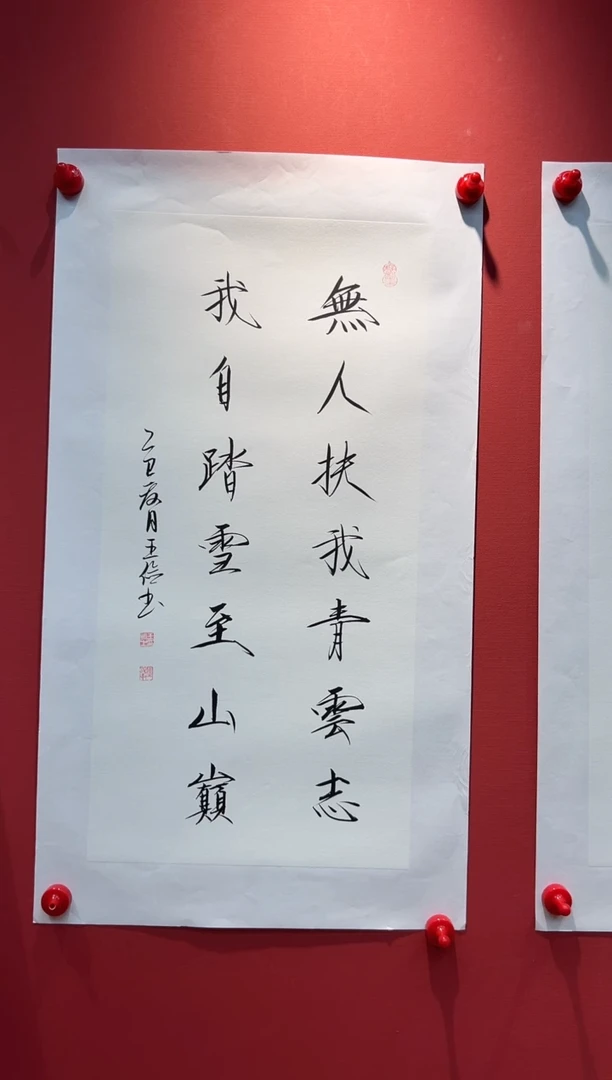 無人扶我青雲志
我自踏雪至山巔
乙巳 月王 书